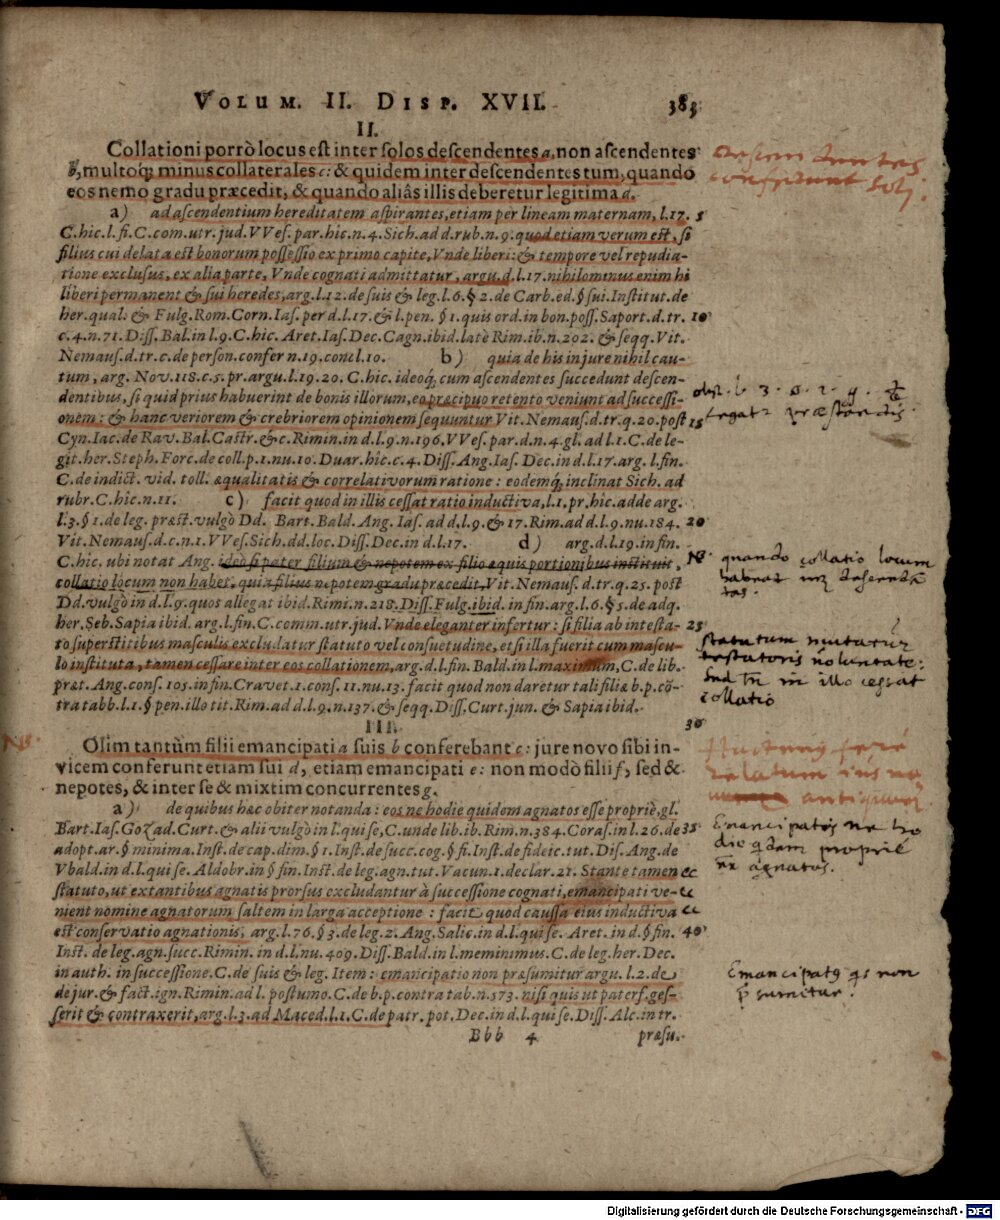 VOLUM. II. DISP. XVII. 383
II.
Collationi porrò locus est inter solos descendentes a, non ascendentes
b, multoq́; minus collaterales c: & quidem inter descendentes tum, quando
eos nemo gradu præcedit, & quando aliâs illis deberetur legitima d.
a) ad ascendentium hereditatem aspirantes, etiam per lineam maternam, l. 17. 5
C. hic. l. fi. C. com. utr. jud. VVes. par. hic. n. 4. Sich. ad d. rub. n. 9. quod etiam verum est, si
filius cui delata est bonorum possessio ex primo capite, Vnde liberi: & tempore vel repudia-
tione exclusus, ex alia parte, Vnde cognati admittatur, argu. d. l. 17. nihilominus enim hi
liberi permanent & sui heredes, arg. l. 12. de suis & leg. l. 6. § 2. de Carb. ed. § sui. Institut. de
her. qual. & Fulg. Rom. Corn. Ias. per d. l. 17. & l. pen. § 1. quis ord. in bon. poss. Saport. d. tr. 10
c. 4. n. 71. Diss. Bal. in l. 9. C. hic. Aret. Ias. Dec. Cagn. ibid. latè Rim. ib. n. 202. & seqq. Vit.
Nemaus. d. tr. c. de person. confer n. 19. concl. 10. b) quia de his in jure nihil cau-
tum, arg. Nov. 118. c. 5. pr. argu. l. 19. 20. C. hic. ideoq́, cum ascendentes succedunt descen-
dentibus, si quid prius habuerint de bonis illorum, eo præcipuo retento veniunt ad successi-
onem: & hanc veriorem & crebriorem opinionem sequuntur Vit. Nemaus. d. tr. q. 20. post 15
Cyn. Iac. de Rav. Bal. Castr. & c. Rimin. in d. l. 9. n. 196. VVes. par. d. n. 4. gl. ad l. 1. C. de le-
git. her. Steph. Forc. de coll. p. 1. nu. 10. Duar. hic. c. 4. Diss. Ang. Ias. Dec. in d. l. 17. arg. l. fin.
C. de indict. vid. toll. æqualitatis & correlativorum ratione: eodemq́, inclinat Sich. ad
rubr. C. hic. n. 11. c) facit quod in illis cessat ratio inductiva, l. 1. pr. hic. adde arg.
l. 3. § 1. de leg. præst. vulgò Dd. Bart. Bald. Ang. Ias. ad d. l. 9. & 17. Rim. ad d. l. 9. nu. 184. 20
Vit. Nemaus. d. c. n. 1. VVes. Sich. dd. loc. Diss. Dec. in d. l. 17. d) arg. d. l. 19. in fin.
C. hic. ubi notat Ang. ideò si pater filium & nepotem ex filio æquis portionibus instituit,
collatio locum non habet, quia filius nepotem gradu præcedit, Vit. Nemaus. d. tr. q. 25. post
Dd. vulgò in d. l. 9. quos allegat ibid. Rimi. n. 218. Diss. Fulg. ibid. in fin. arg. l. 6. § 5. de adq.
her. Seb. Sapia ibid. arg. l. fin. C. comm. utr. jud. Vnde eleganter infertur: si filia ab intesta- 25
to superstitibus masculis excludatur statuto vel consuetudine, etsi illa fuerit cum mascu-
lo instituta, tamen cessare inter eos collationem, arg. d. l. fin. Bald. in l. maximum, C. de lib.
præt. Ang. cons. 105. in fin. Cravet. 1. cons. 11. nu. 13. facit quod non daretur tali filiæ b. p. cō-
tra tabb. l. 1. § pen. illo tit. Rim. ad d. l. 9. n. 137. & seqq. Diss. Curt. jun. & Sapia ibid.
III. 30
Olim tantùm filii emancipati a suis b conferebant c: jure novo sibi in-
vicem conferunt etiam sui d, etiam emancipati e: non modò filii f, sed &
nepotes, & inter se & mixtim concurrentes g.
a) de quibus hæc obiter notanda: eos ne hodie quidem agnatos esse propriè, gl.
Bart. Ias. Goz ad. Curt. & alii vulgò in l. qui se, C. unde lib. ib. Rim. n. 384. Coras. in l. 26. de 35
adopt. ar. § minima. Inst. de cap. dim. § 1. Inst. de succ. cog. § fi. Inst. de fideic. tut. Dis. Ang. de
Vbald. in d. l. qui se. Aldobr. in § fin. Inst. de leg. agn. tut. Vacun. 1. declar. 21. Stante tamen
statuto, ut extantibus agnatis prorsus excludantur à successione cognati, emancipati ve-
nient nomine agnatorum saltem in larga acceptione: facit, quod caussa eius inductiva
est conservatio agnationis, arg. l. 76. § 3. de leg. 2. Ang. Salic. in d. l. qui se. Aret. in d. § fin. 40
Inst. de leg. agn. succ. Rimin. in d. l. nu. 409. Diss. Bald. in l. meminimus. C. de leg. her. Dec.
in auth. in successione. C. de suis & leg. Item: emancipatio non præsumitur argu. l. 2. de
de jur. & fact. ign. Rimin. ad l. postumo. C. de b. p. contra tab. n. 573. nisi quis ut paterf. ges-
serit & contraxerit, arg. l. 3. ad Maced. l. 1. C. de patr. pot. Dec. in d. l. qui se. Diss. Alc. in tr.
Bbb 4 præsu-
quando collatio locum
statutum mutatur
testatoris voluntate:
in illo cessat
collatio
antiquum
Emancipatos ne ho
die proprie
agnatos.
non
Digitalisierung gefördert durch die Deutsche Forschungsgemeinschaft - DFG